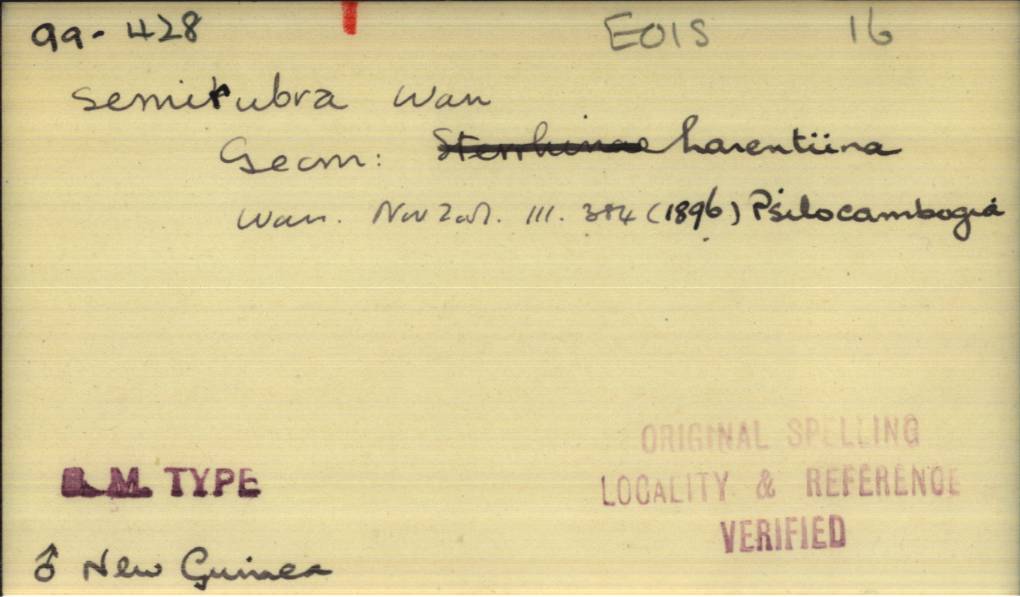 99-428 EOIS 16
semirubra Warr
Geom: Sterrhinae Larentiina
Warr. Nov Zool. III. 384 (1896) Psilocambogia
B.M. TYPE
ORIGINAL SPELLING
LOCALITY & REFERENCE
VERIFIED
♂ New Guinea